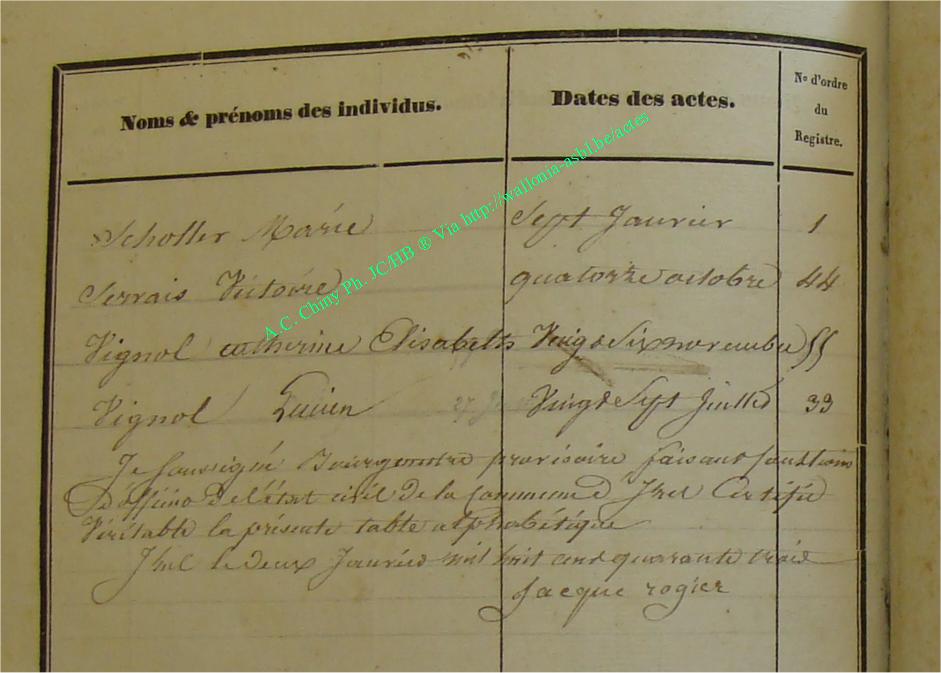 Noms & prénoms des individus. Dates des actes. No d'ordre
du
Registre.
A.C. Chiny Ph. JC/HB ® Via http://wallonia-asbl.be/actes
Scholler Marie Sept Janvier 1
Servais Victoire quatorze octobre 44
Vignol catherine Elisabeth Vingt Six novembre 55
Vignol Lucien Vingt Sept Juillet 39
Je soussigné Bourgmestre provisoire faisant fonctions
D'officier De l'état civil De la Commune D' Certifie
Véritable la présente table alphabétique
le deux Janvier mil huit cent quarante trois
Jacque rogier